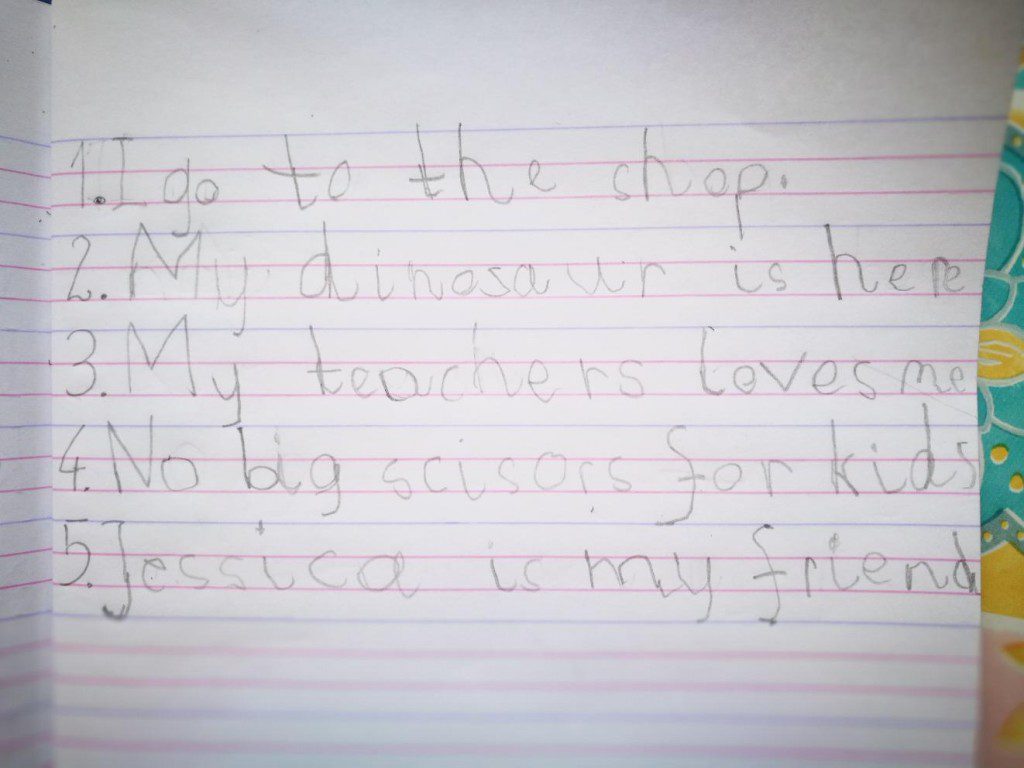 1. I go to the shop.
2. My dinosaur is here
3. My teachers loves me
4. No big scisors for kids
5. Jessica is my friend